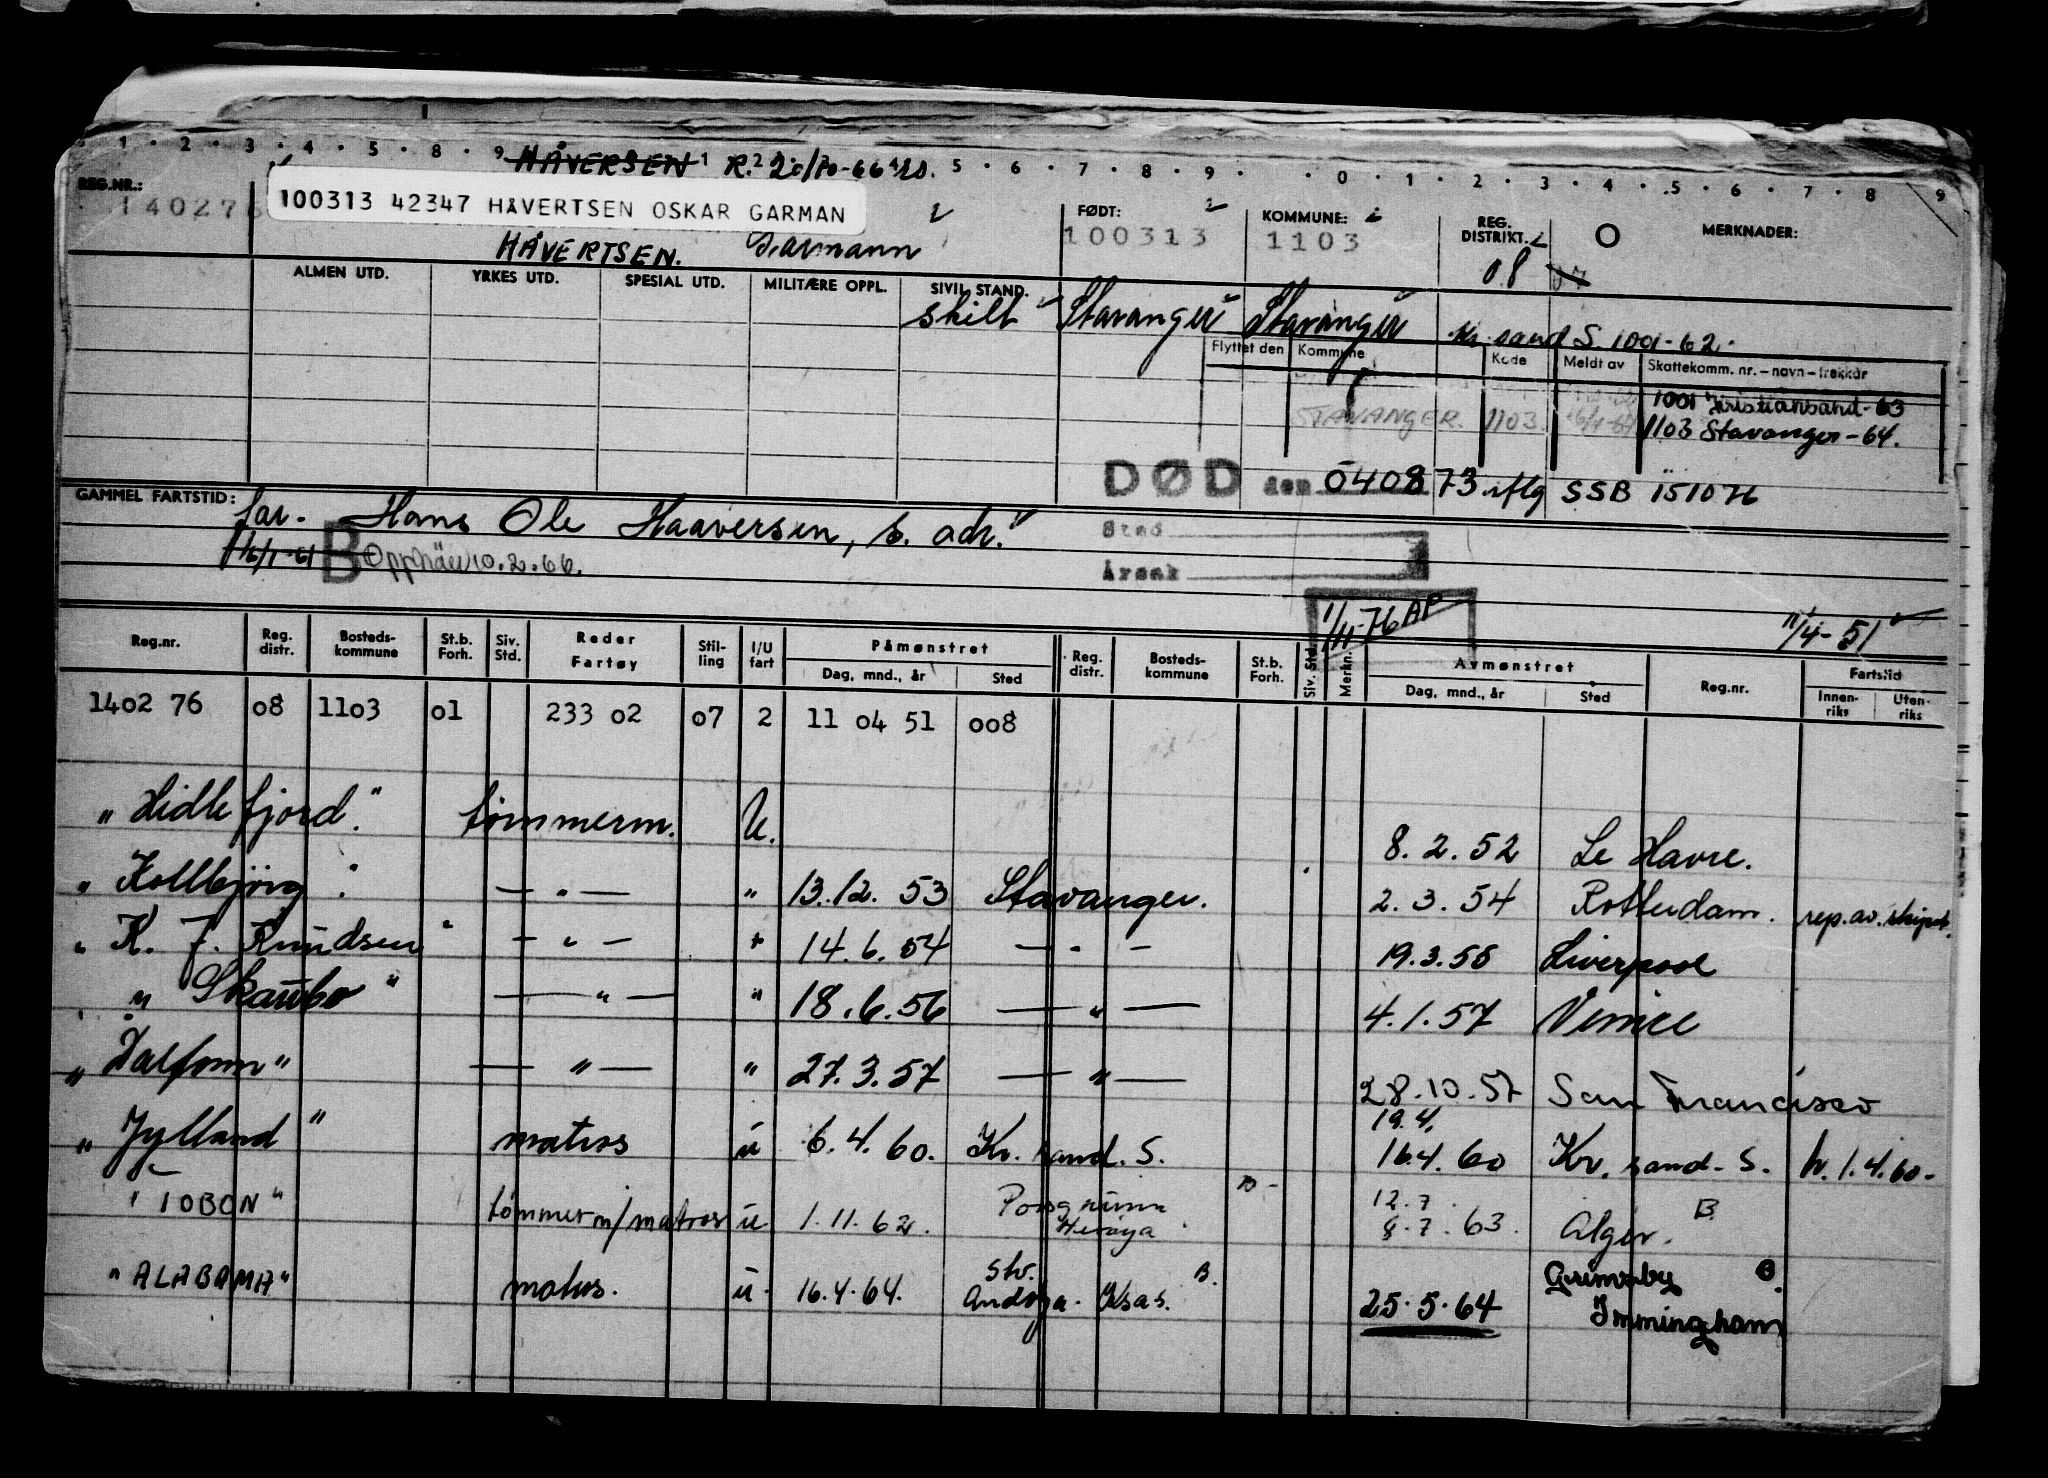 1 · 2 · 3 · 4 · 5 · 8 · 9 HÅVERSEN 5 · 6 · 7 · 8 · 9 · · 0 · 1 · 2 · 3 · 4 · 5 · 6 · 7 · 8 · 9
REG.NR.: 14027
100313 42347 HÅVERTSEN OSKAR GARMAN
HÅVERTSEN. Garmann
FØDT: 100313
KOMMUNE: 1103
REG. DISTRIKT. 08 07
O
MERKNADER:
ALMEN UTD. YRKES UTD. SPESIAL UTD. MILITÆRE OPPL. SIVIL STAND.
skilt Stavanger Stavanger Kr. sand S. 1001-62.
Flyttet den Kommune Kode Meldt av Skattekomm. nr. – navn – trekkår
1001 Kristiansand-63
STAVANGER. 1103. 1103 Stavanger-64.
DØD den 040873 iflg SSB 151076
GAMMEL FARTSTID: far. Hans Ole Haaversen, s. adr.
Sted
16/1-61 B Opphäv 10.2.66.
Årsak
1/11-76 AP
11/4-51
Reg.nr. Reg. distr. Bosteds-kommune St.b. Forh. Siv. Std. Reder Fartøy Stil-ling I/U fart Påmønstret Dag, mnd., år Sted Reg. distr. Bosteds-kommune St.b. Forh. Siv. Std. Merkn. Avmønstret Dag, mnd., år Sted Reg.nr. Fartstid Innen-riks Uten-riks
1402 76 08 1103 01 233 02 07 2 11 04 51 008
"Hidlefjord." tømmerm. U. 8.2.52 Le Havre.
" Kollbjörg " — " — " 13.12.53 Stavanger. 2.3.54 Rotterdam. rep. av. skipet.
" K. J. Knudsen " — " — " 14.6.54 — " — 19.3.55 Liverpool
" Skaubo " — " — " 18.6.56 — " — 4.1.57 Venice
" Dalfonn " — " — " 27.3.57 — " — 28.10.57 San Francisco
19.4.
" Jylland " matros u 6.4.60. Kr. sand. S. 16.4.60 Kr. sand. S. h. 1.4.60-
" TOBON " tømmerm/matros u 1.11.62. Porsgrunn Herøya 12.7. 8.7.63. Alger. B.
" ALABAMA " matros. u. 16.4.64. Stv. Andøya. Ksas. B. 25.5.64 Grimsby Immingham B.